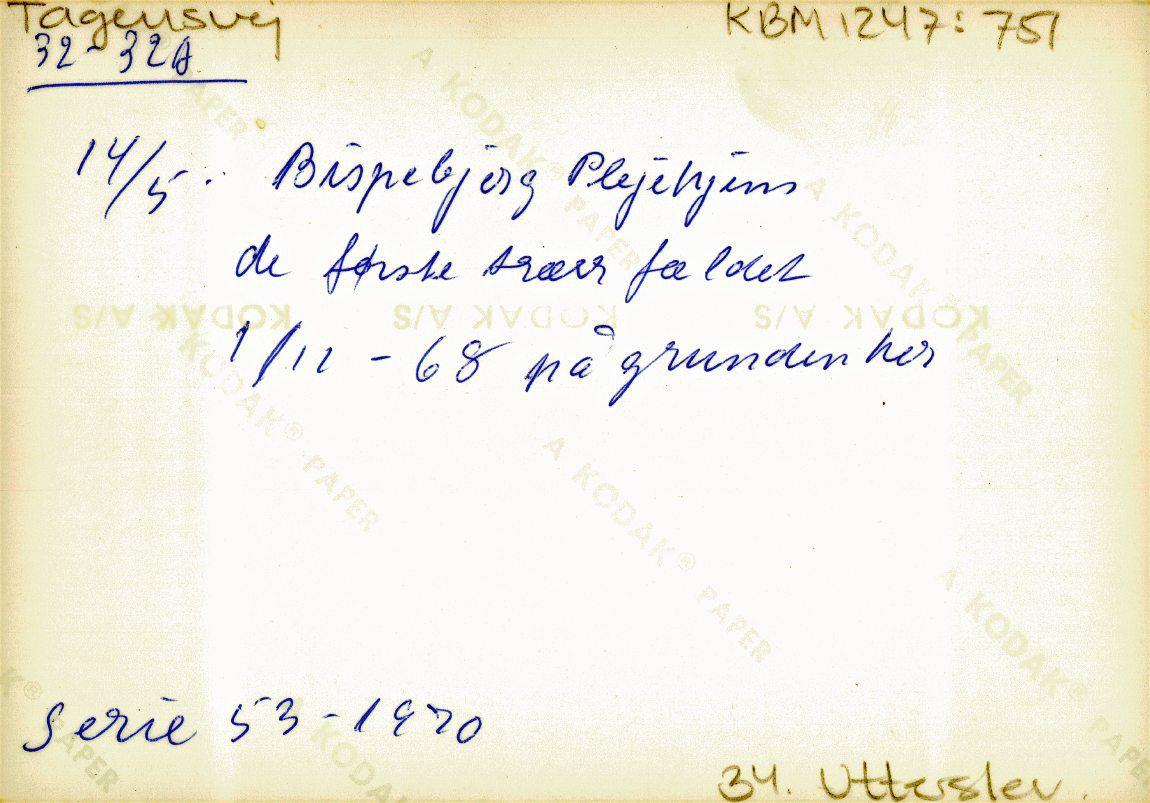 Tagensvej
KBM 1247: 751
32-32A
14/5. Bispebjerg Plejehjem
de første træer fældet
1/12 - 68 på grunden her
KODAK A/S KODAK A/S KODAK A/S
A KODAK® PAPER
A KODAK® PAPER
A KODAK® PAPER
A KODAK® PAPER
A KODAK® PAPER
Serie 53-1970
34. Utterslev.